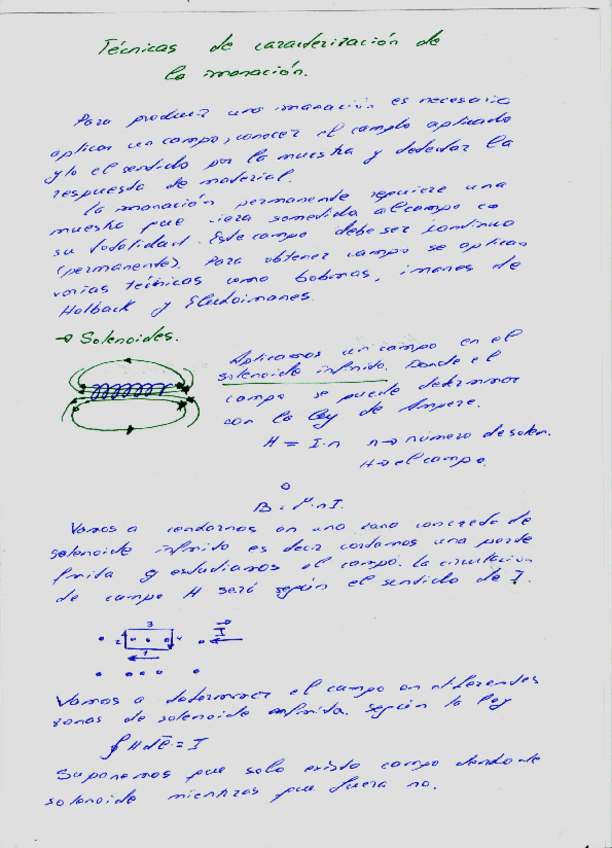 Técnicas de caracterización de
la imanación.
Para producir una imanación es necesario
aplicar un campo, conocer el campo aplicado
y/o el sentido por la muestra y detectar la
respuesta de material.
La imanación permanente requiere una
muestra que sera sometida al campo en
su totalidad. Este campo debe ser continuo
(permanente). Para obtener campo se aplican
varias técnicas como bobinas, imanes de
Halback y Electroimanes.
→ Solenoides.
Aplicamos un campo en el
solenoide infinito. Donde el
campo se puede determinar
con la ley de Ampere.
H = I·n n→ número de solen.
H→ el campo.
o
B = μ·nI.
Vamos a en una zona concreta de
solenoide infinito es decir cortamos una parte
finita y estudiamos el campo. La circulación
de campo H será según el sentido de I.
3
2 4 I
1
Vamos a determinar el campo en diferentes
zonas de solenoide infinito. Según la ley
∮ H dl = I
Suponemos que solo existe campo dentro de
solenoide mientras que fuera no.